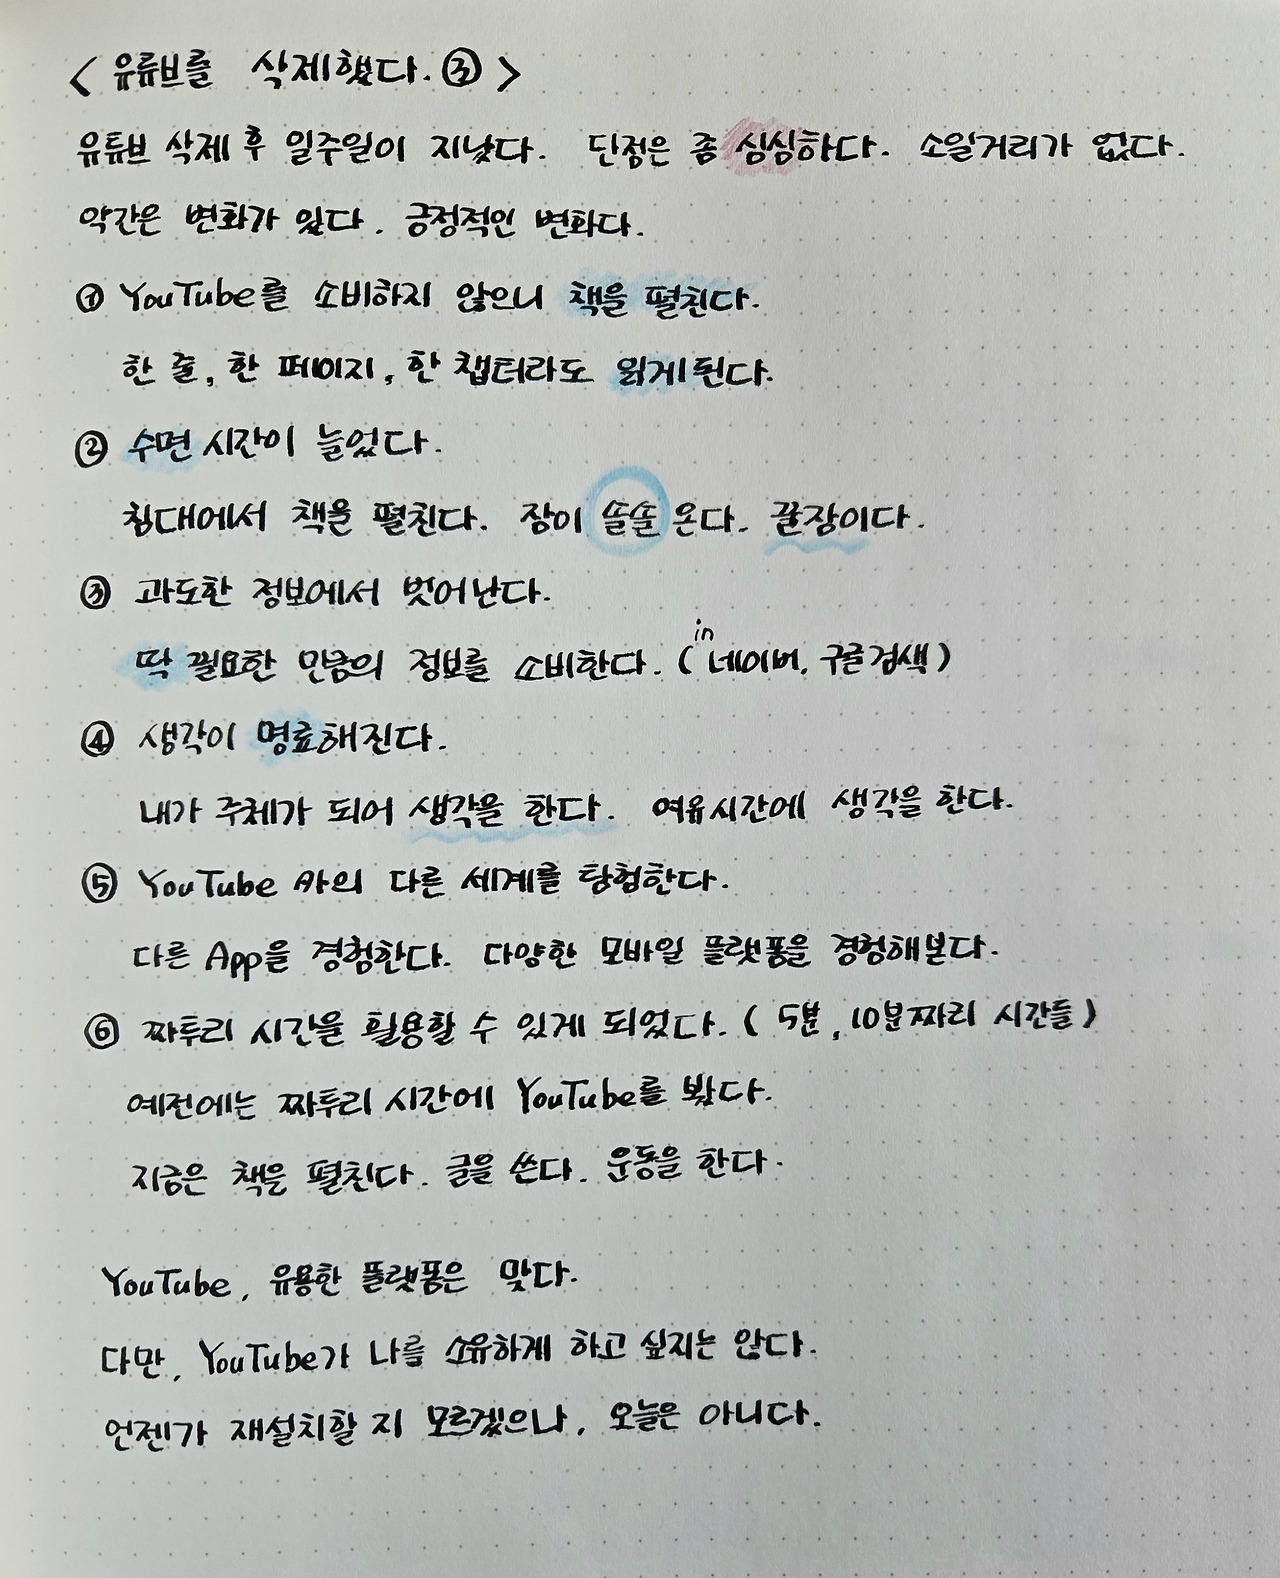 < 유튜브를 삭제했다. ③ >
유튜브 삭제 후 일주일이 지났다. 단점은 좀 심심하다. 소일거리가 없다.
약간은 변화가 있다. 긍정적인 변화다.
① YouTube를 소비하지 않으니 책을 펼친다.
한 줄, 한 페이지, 한 챕터라도 읽게된다.
② 수면 시간이 늘었다.
침대에서 책을 펼친다. 잠이 솔솔 온다. 꿀잠이다.
③ 과도한 정보에서 벗어난다.
딱 필요한 만큼의 정보를 소비한다. ( in 네이버, 구글검색 )
④ 생각이 명료해진다.
내가 주체가 되어 생각을 한다. 여유시간에 생각을 한다.
⑤ YouTube 外의 다른 세계를 탐험한다.
다른 App을 경험한다. 다양한 모바일 플랫폼을 경험해본다.
⑥ 짜투리 시간을 활용할 수 있게 되었다. ( 5분, 10분짜리 시간들 )
예전에는 짜투리 시간에 YouTube를 봤다.
지금은 책을 펼친다. 글을 쓴다. 운동을 한다.
YouTube, 유용한 플랫폼은 맞다.
다만, YouTube가 나를 소유하게 하고 싶지는 않다.
언젠가 재설치할 지 모르겠으나, 오늘은 아니다.